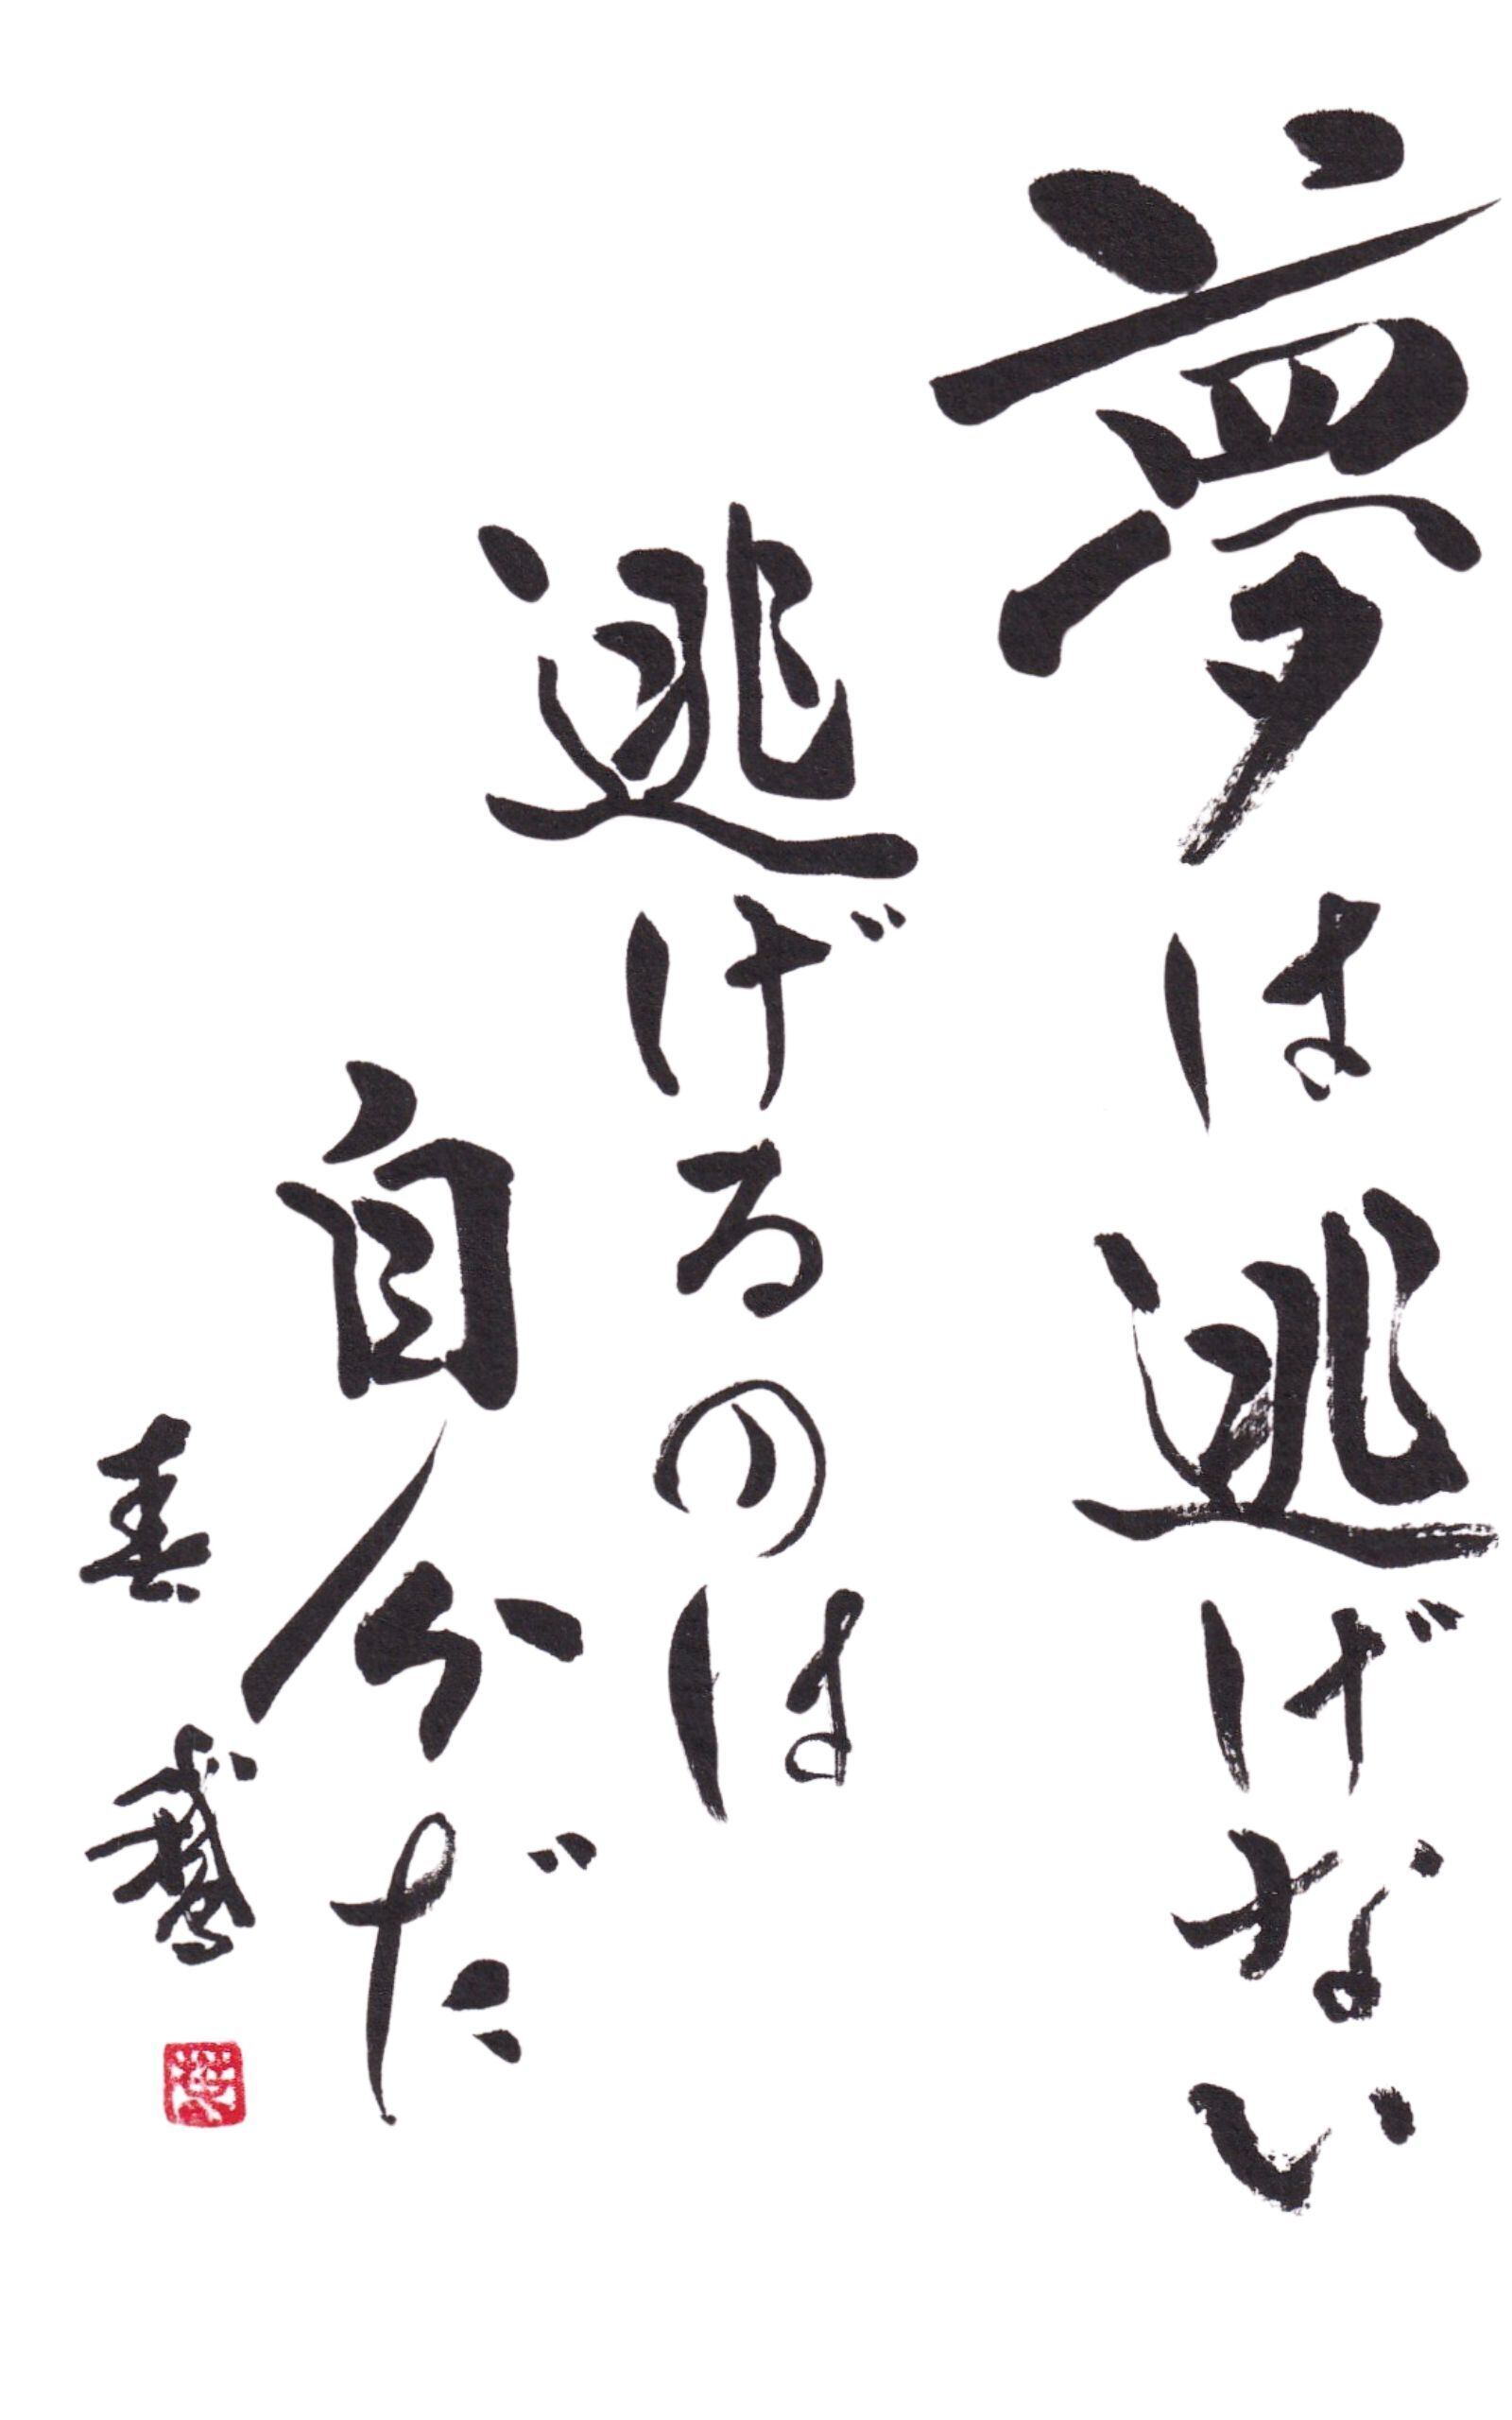 夢は逃げない
逃げるのは
自分だ
春鵞